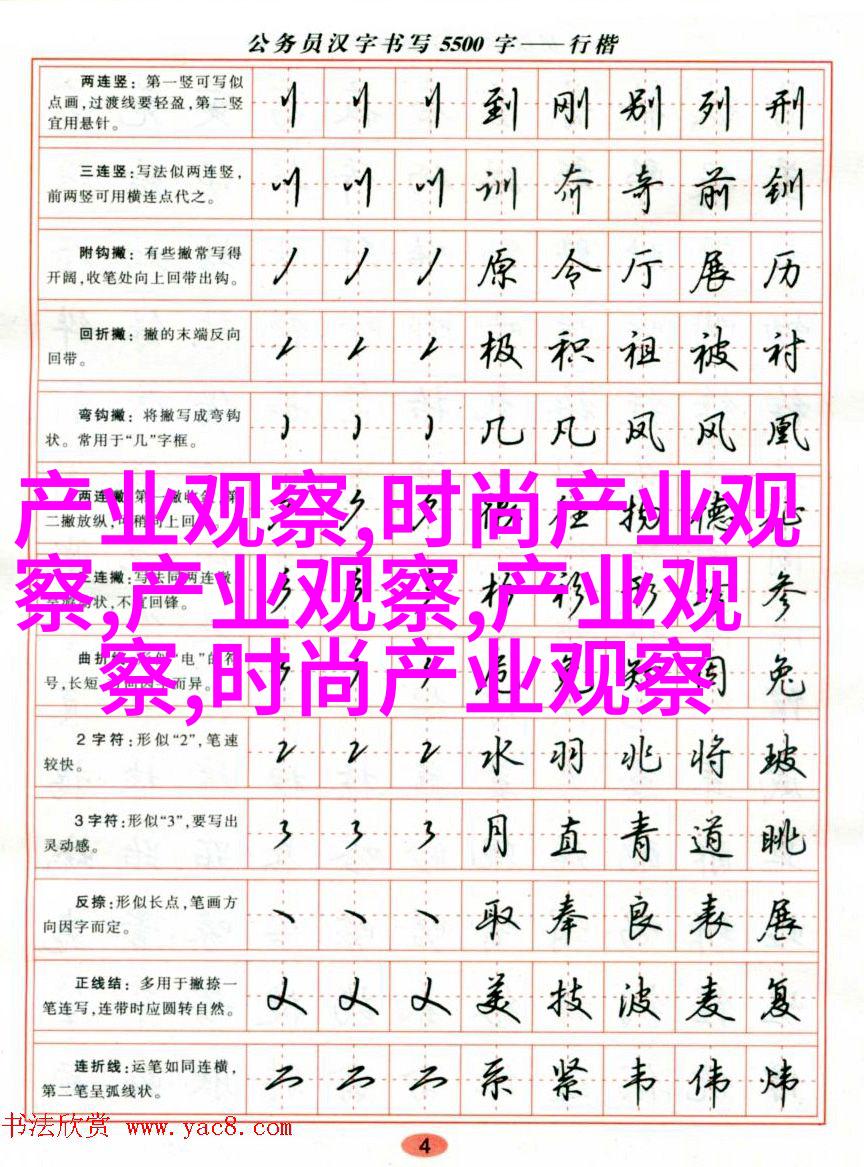 公务员汉字书写5500字——行楷
两连竖：第一竖可写似
点画，过渡线要轻盈，第二竖
宜用悬针。
到 刚 别 列 刑
三连竖：写法似两连竖，
前两竖可用横连点代之。
训 夼 奇 前 钏
附钩撇：有些撇常写得
开阔，收笔处向上回带出钩。
原 令 厅 展 历
回折撇：撇的末端反向
回带。
极 积 祖 被 衬
弯钩撇：将撇写成弯钩
状。常用于“几”字框。
几 凡 凤 风 凰
产业观察,时尚产业观
察,产业观察,产业观
察,时尚产业观察
两连撇
二撇放纵
三连撇：写法同两连撇
状，不宜回锋。
参
曲折
“电”的符
号，长短
而异。
兔
2字符：形似“2”，笔速
较快。
2 2 2 水 羽 兆 将 玻
3字符：形似“3”，要写出
灵动感。
3 3 3 月 直 青 道 眺
反捺：形似长点，笔画方
向因字而定。
取 奉 良 表 展
正线结：多用于撇捺一
笔连写，连带时应圆转自然。
美 技 波 麦 复
连折线：运笔如同连横，
第二笔呈弧线状。
系 紧 韦 伟 炜
书法欣赏 www.yac8.com
4